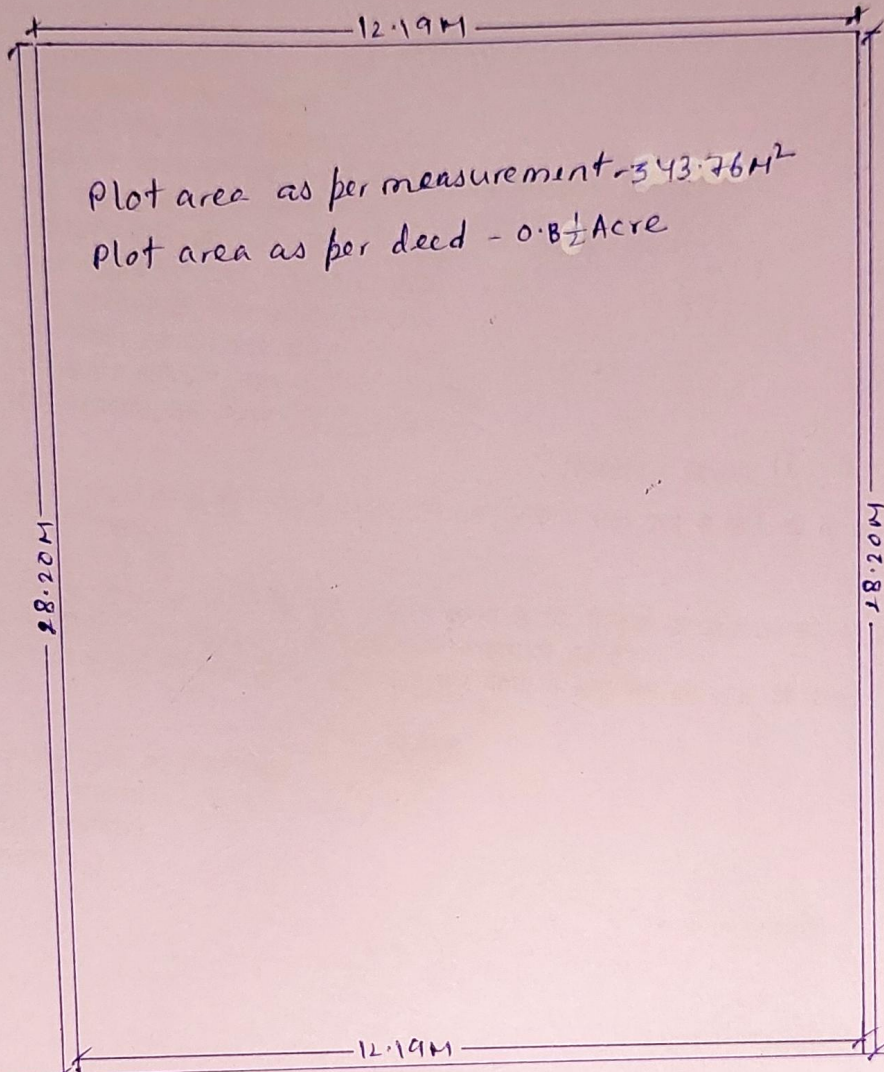 12.19M
Plot area as per measurement-343.76M²
Plot area as per deed - 0.8½Acre
28.20M
28.20M
12.19M